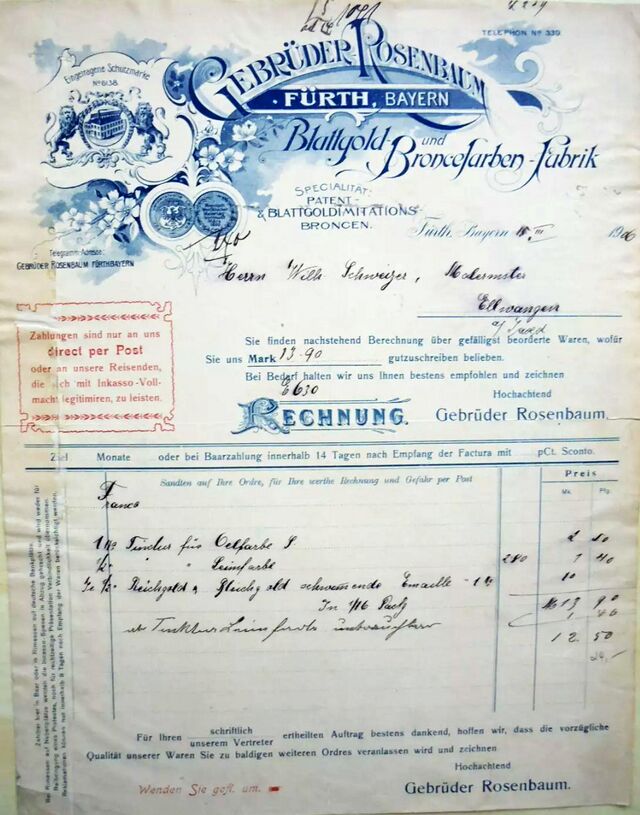 TELEPHON No 339.
Eingetragene Schutzmarke
No 6138.
GEBRÜDER ROSENBAUM
FÜRTH, BAYERN
Blattgold- und Broncefarben-Fabrik
SPECIALITÄT:
PATENT-
& BLATTGOLDIMITATIONS-
BRONCEN.
Telegramm-Adresse:
GEBRÜDER ROSENBAUM FÜRTHBAYERN
Fürth, Bayern III 1906
Herrn Wilh Schweizer, Malermster
Ellwangen
a/ Jagd
Zahlungen sind nur an uns
direct per Post
oder an unsere Reisenden,
die sich mit Inkasso-Voll-
macht legitimiren, zu leisten.
Sie finden nachstehend Berechnung über gefälligst beorderte Waren, wofür
Sie uns Mark 13-90 gutzuschreiben belieben.
Bei Bedarf halten wir uns Ihnen bestens empfohlen und zeichnen
E 630
Hochachtend
RECHNUNG.
Gebrüder Rosenbaum.
Ziel Monate oder bei Baarzahlung innerhalb 14 Tagen nach Empfang der Factura mit pCt. Sconto.
Sandten auf Ihre Ordre, für Ihre werthe Rechnung und Gefahr per Post
Preis
Mk. Pfg.
Franco
1 Ko Tinctur für Oelfarbe 2 50
1/2 " " Leimfarbe 280 1 40
Je 1/2 Reichgold & Bleichgold Emaille 10
In 1/16 Pack M 13 90
1 40
12 50
Für Ihren schriftlich
unserem Vertreter ertheilten Auftrag bestens dankend, hoffen wir, dass die vorzügliche
Qualität unserer Waren Sie zu baldigen weiteren Ordres veranlassen wird und zeichnen
Hochachtend
Wenden Sie gefl. um.
Gebrüder Rosenbaum.